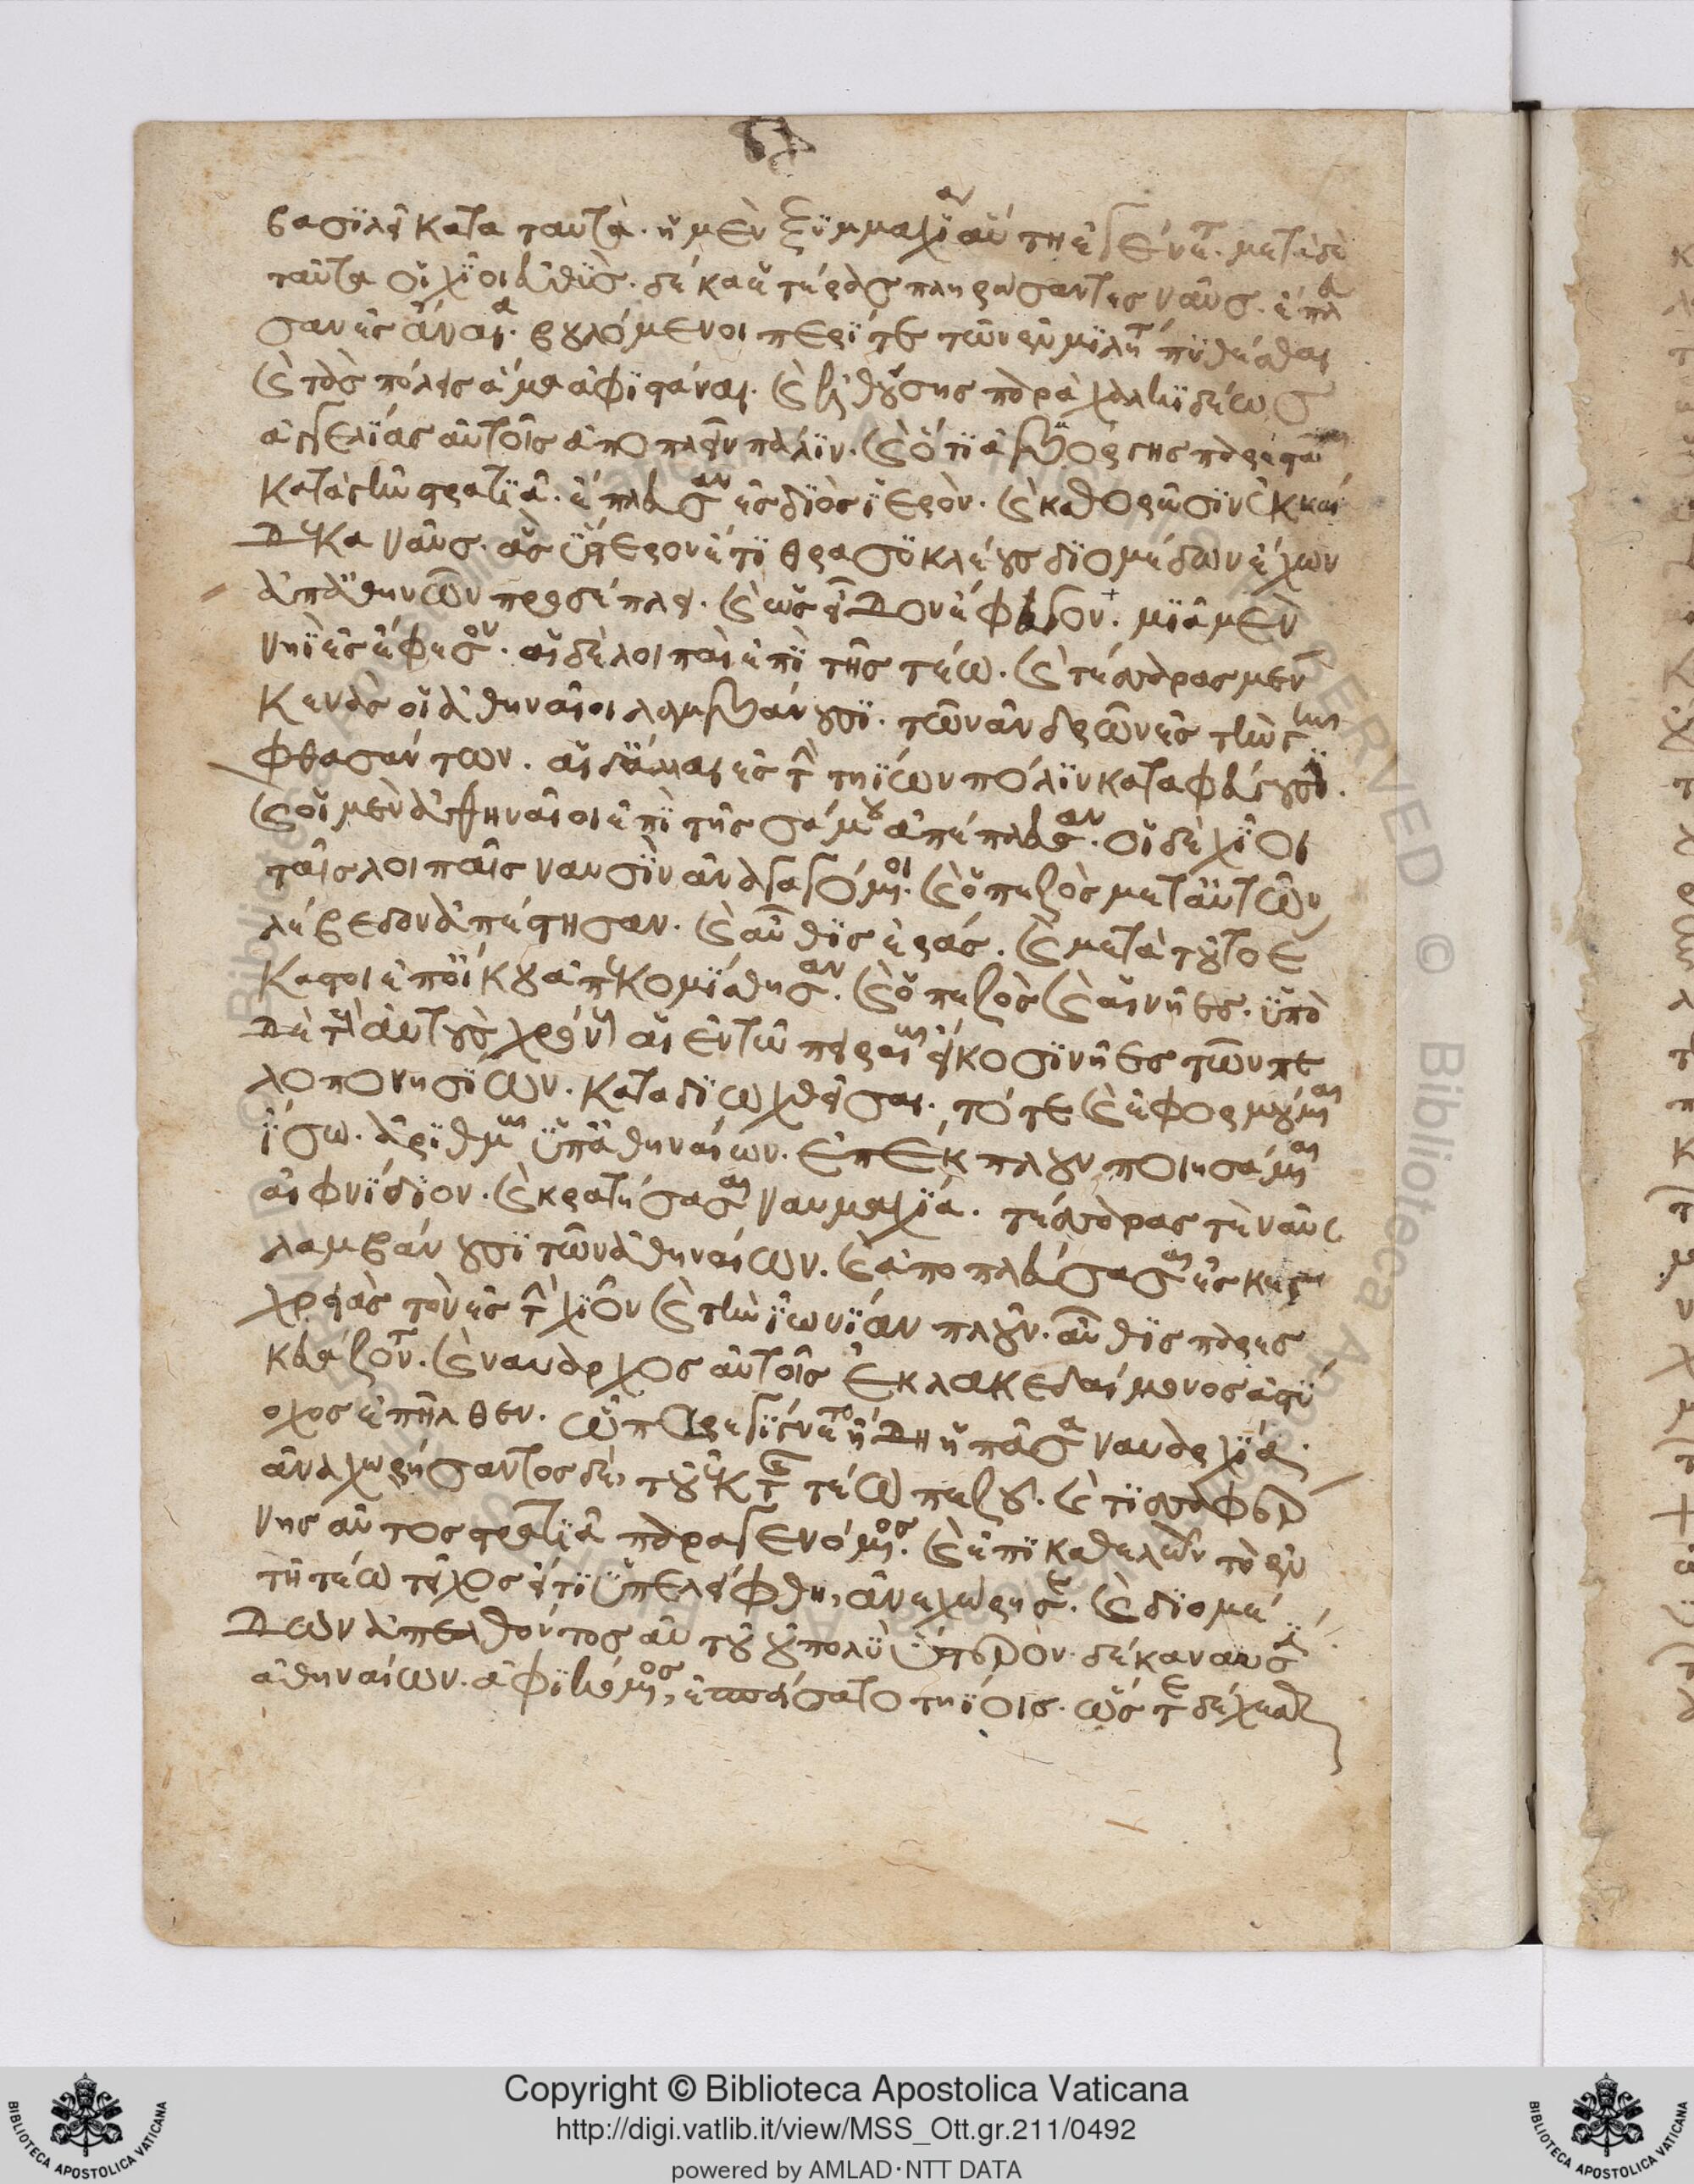 βασιλεῖ κατὰ ταυτά. ἡ μὲν ξυμμαχία αὕτη ἐγένετο. μετὰ δὲ
ταῦτα οἱ χῖοι εὐθὺς. δέκα ἑτέρας πληρώσαντες ναῦς. ἔπλευ
σαν ἐς ἄναια. βουλόμενοι περί τε τῶν ἐν μιλήτω πυθέσθαι
καὶ τὰς πόλεις ἅμα ἀφιστάναι. καὶ ἐλθούσης παρὰ χαλκιδέως
ἀγγελίας αὐτοῖς ἀποπλεῖν πάλιν. καὶ ὅτι ἀμόργης παρέσται
κατὰ γῆν στρατιᾷ. ἔπλευσαν ἐς διὸς ἱερὸν. καὶ καθορῶσιν ἑκκαί
δεκα ναῦς. ἃς ὕστερον ἔτι θρασυκλέους διομέδων ἔχων
ἀπ ἀθηνῶν προσέπλει. καὶ ὡς εἶδον ἔφευγον. μιᾷ μὲν
νηῒ ἐς ἔφεσον. αἱ δὲ λοιπαὶ ἐπὶ τῆς τέω. καὶ τέσσαρας μὲν
κενὰς οἱ ἀθηναῖοι λαμβάνουσι. τῶν ἀνδρῶν ἐς τὴν γῆν
φθασάντων. αἱ δ ἄλλαι ἐς τὴν τηίων πόλιν καταφεύγουσι.
καὶ οἱ μὲν ἀθηναῖοι ἐπὶ τῆς σάμου ἀπέπλευσαν. οἱ δὲ χῖοι
ταῖς λοιπαῖς ναυσὶν ἀναγαγόμενοι. καὶ ὁ πεζὸς μετ αὐτῶν
λέβεδον ἀπέστησαν. καὶ αὖθις ἐράς. καὶ μετὰ τοῦτο ἕ
καστοι ἐπ οἴκου ἀπεκομίσθησαν. καὶ ὁ πεζὸς καὶ αἱ νῆες. ὑπὸ
δὲ τοὺς αὐτοὺς χρόνους αἱ ἐν τῶ πειραιεῖ εἴκοσι νῆες τῶν πε
λοποννησίων. καταδιωχθεῖσαι. τότε καὶ ἐφορμούμεναι
ἴσω. ἀριθμῶ ὑπ ἀθηναίων. ἐπέκπλουν ποιησάμεναι
αἰφνίδιον. καὶ κρατήσασαι ναυμαχία. τέσσαρας τε ναῦς
λαμβάνουσι τῶν ἀθηναίων. καὶ ἀποπλεύσασαι ἐς κεγ
χρειὰς τὸν ἐς τὴν χίον καὶ τὴν ἰωνίαν πλοῦν. αὖθις παρεσ
κευάζοντο. καὶ ναύαρχος αὐτοῖς ἐκ λακεδαίμονος ἀστύ
οχος ἐπῆλθεν. ὧπερ ἐγίγνετο ἤδη ἡ πᾶσα ναυαρχία.
ἀναχωρήσαντος δὲ, τοῦ ἐκ τῆς τέω πεζοῦ. καὶ τισσαφέρ
νης αὐτὸς στρατιᾷ παραγενόμενος. καὶ ἐπικαθελὼν τὸ ἐν
τῇ τέω τεῖχος εἴ τι ὑπελείφθη, ἀνεχώρησε. καὶ διομέ
δων ἀπελθόντος αὐτοῦ οὐ πολὺ ὕστερον. δέκα ναυσὶ
ἀθηναίων. ἀφικόμενος, ἐσπείσατο τηίοις. ὥστε δέχεσθαι
Copyright © Biblioteca Apostolica Vaticana
http://digi.vatlib.it/view/MSS_Ott.gr.211/0492
powered by AMLAD·NTT DATA
BIBLIOTECA APOSTOLICA VATICANA
BIBLIOTECA APOSTOLICA VATICANA